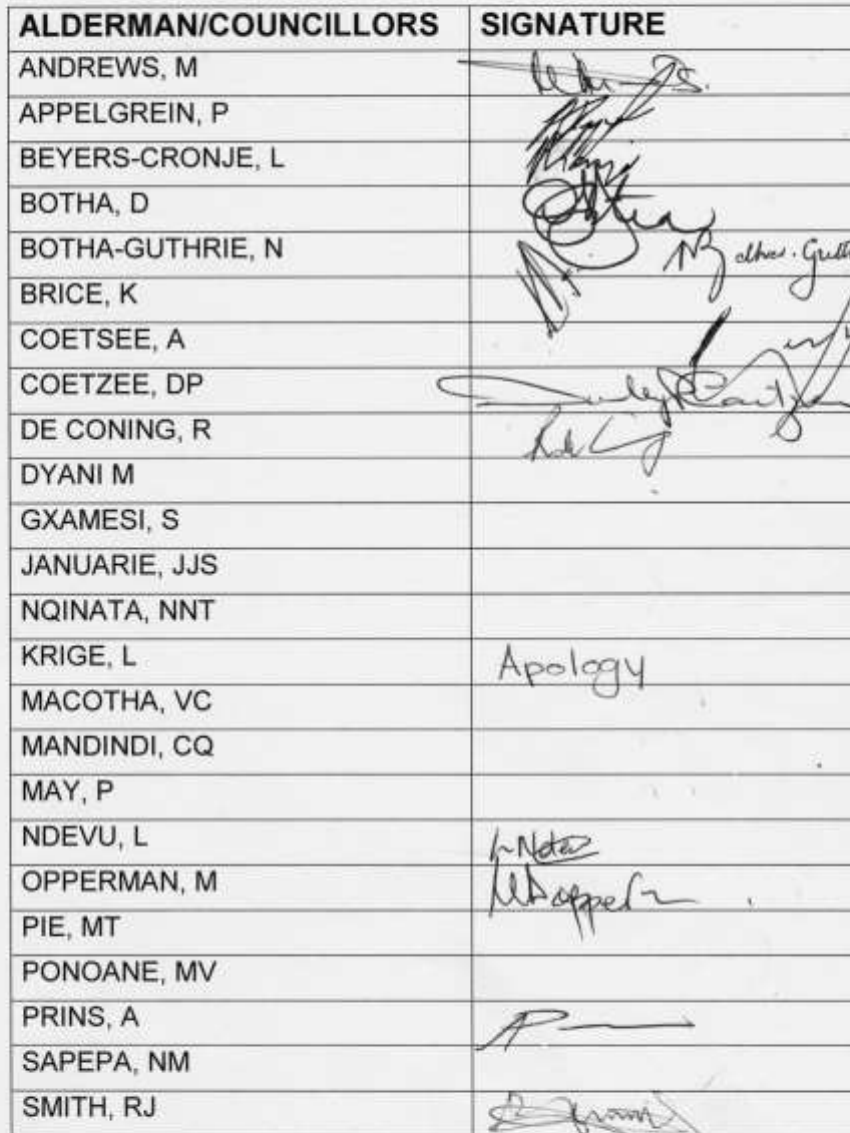 ALDERMAN/COUNCILLORS SIGNATURE
ANDREWS, M
APPELGREIN, P
BEYERS-CRONJE, L
BOTHA, D
BOTHA-GUTHRIE, N
BRICE, K
COETSEE, A
COETZEE, DP
DE CONING, R
DYANI M
GXAMESI, S
JANUARIE, JJS
NQINATA, NNT
KRIGE, L Apology
MACOTHA, VC
MANDINDI, CQ
MAY, P
NDEVU, L
OPPERMAN, M
PIE, MT
PONOANE, MV
PRINS, A
SAPEPA, NM
SMITH, RJ